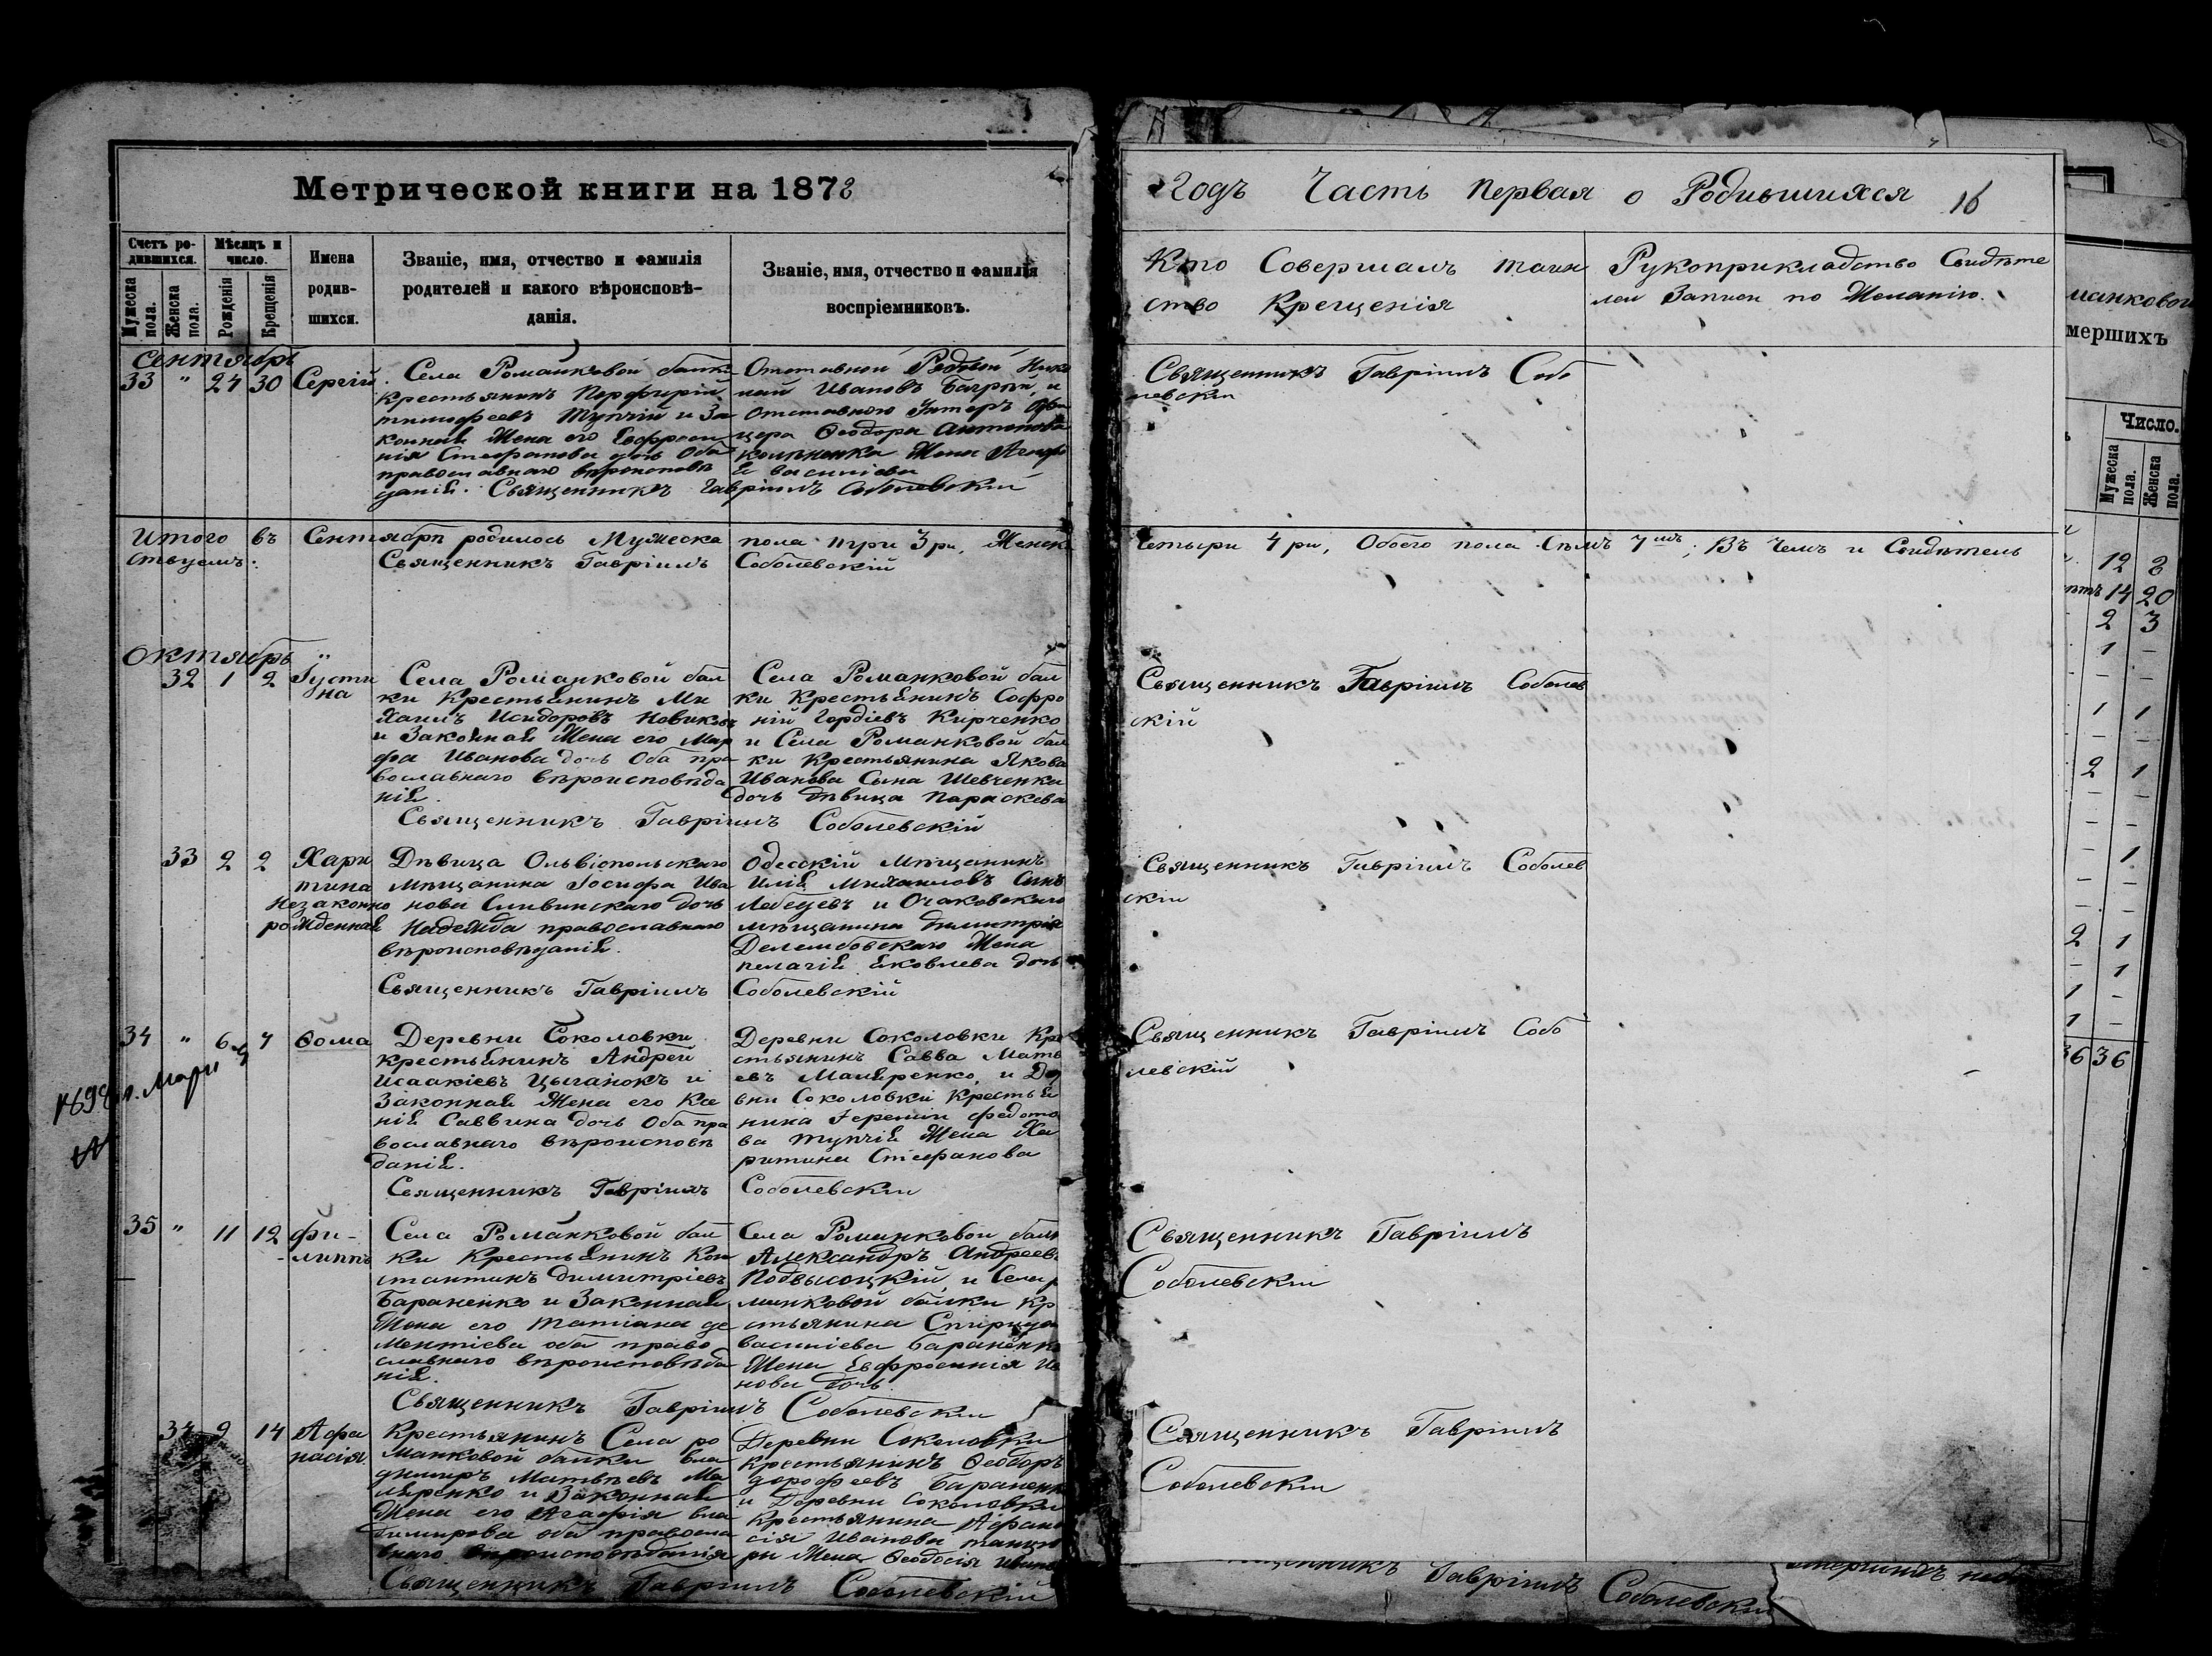 Метрической книги на 1872
Годъ Часть Первая о Родившихся 16
Счетъ родившихся.
Мѣсяцъ и число.
Мужеска пола.
Женска пола.
Рожденія
Крещенія
Имена родившихся.
Званіе, имя, отчество и фамилія
родителей и какого вѣроисповѣ-
данія.
Званіе, имя, отчество и фамилія
воспріемниковъ.
Кто Совершалъ таин
ство Крещенія
Рукоприкладство Свидѣте
лей Записи по Желанію.
Сентябрь
33 " 24 30 Сергій
Села Романковой балки
крестьянинъ Порфирій
тимофеевъ Тупчій и За
конная Жена его Евфроси
нія Стефанова дочь Оба
православнаго вѣроисповѣ
данія. Священникъ Гавріилъ Соболевскій
Отставной Рядовой Нико
лай Ивановъ Багрій и
Отставного Унтеръ Офи
цера Ѳеодора Антонова
Жена Агафі
я василіева
Священникъ Гавріилъ Собо
левскій
Итого въ Сентябрѣ родилось Мужеска пола три 3 ри, Женска
Четыри 4 ри, Обоего пола Сѣмъ 7мъ; Въ Чемъ и Свидѣтель
ствуемъ: Священникъ Гавріилъ Соболевскій
Октябрь
32 1 2 Іусти
на
Села Романковой бал
ки Крестьянинъ Ми
хаилъ Исидоровъ Новиковъ
и Законная Жена его Мар
фа Иванова дочь Оба пра
вославнаго вѣроисповѣда
нія.
Священникъ Гавріилъ Соболевскій
Села Романковой бал
ки Крестьянинъ Софро
ній Гордіевъ Кирченко
и Села Романковой бал
ки Крестьянина Якова
Иванова Сына Шевченка
дочь дѣвица Параскева
Священникъ Гавріилъ Соболев
скій
33 2 2 Хари
тина
Незаконно
рожденная
Дѣвица Ольвіопольскаго
мѣщанина Іосифа Ива
нова Сливинскаго дочь
Надежда православнаго
вѣроисповѣданія.
Священникъ Гавріилъ Соболевскій
Одесскій мѣщанинъ
Илія Михаиловъ Сынъ
Лебедевъ и Очаковскаго
мѣщанина димитрія
Жена
пелагія Яковлева дочь
Священникъ Гавріилъ Соболев
скій
34 " 6 7 Ѳома
Деревни Соколовки
крестьянинъ Андрей
Исаакіевъ Цыганокъ и
Законная Жена его Ксе
нія Саввина дочь Оба пра
вославнаго вѣроисповѣ
данія.
Священникъ Гавріилъ Соболевскій
Деревни Соколовки Кре
стьянинъ Савва Матѳ
евъ Маляренко, и Дер
вни Соколовки Крестья
нина Іереміи Федото
ва тупчія Жена Ха
ритина Стефанова
Священникъ Гавріилъ Собо
левскій
35 " 11 12 Фи-
липпъ
Села Романковой бал
ки Крестьянинъ Кон
стантинъ димитріевъ
Бараненко и Законная
Жена его Татіана де
ментіева оба право
славнаго вѣроисповѣда
нія.
Священникъ Гавріилъ Соболевскій
Села Романковой балки
Александръ Андреевъ
Подвысоцкій и Села р
манковой балки кр
стьянина Спирида
василіева Бараненка
Жена Евфросинія Ив
нова дочь
Священникъ Гавріилъ
Соболевскій
34 9 14 Афа
насія
Крестьянинъ Села ро
манковой балки Вла
диміръ Матвѣевъ Ма
ляренко и Законная
Жена его Агафія вла
димирова оба правосла
внаго вѣроисповѣданія
Священникъ Гавріилъ Соболевскій
Деревни Соколовки
крестьянинъ Ѳеодоръ
дорофеевъ Бараненк
и Деревни Соколовки
Крестьянина Афана
сія Иванова
ри Жена Ѳеодосія Ивано
Священникъ Гавріилъ
Соболевскій
Гавріилъ Соболевскій
манковой
мершихъ
Число.
Мужеска пола.
Женска пола.
12 2
14 20
2 3
1 -
- -
1 1
- -
2 1
- -
- -
- 1
- -
- -
2 1
- 1
1 -
1 -
36 36